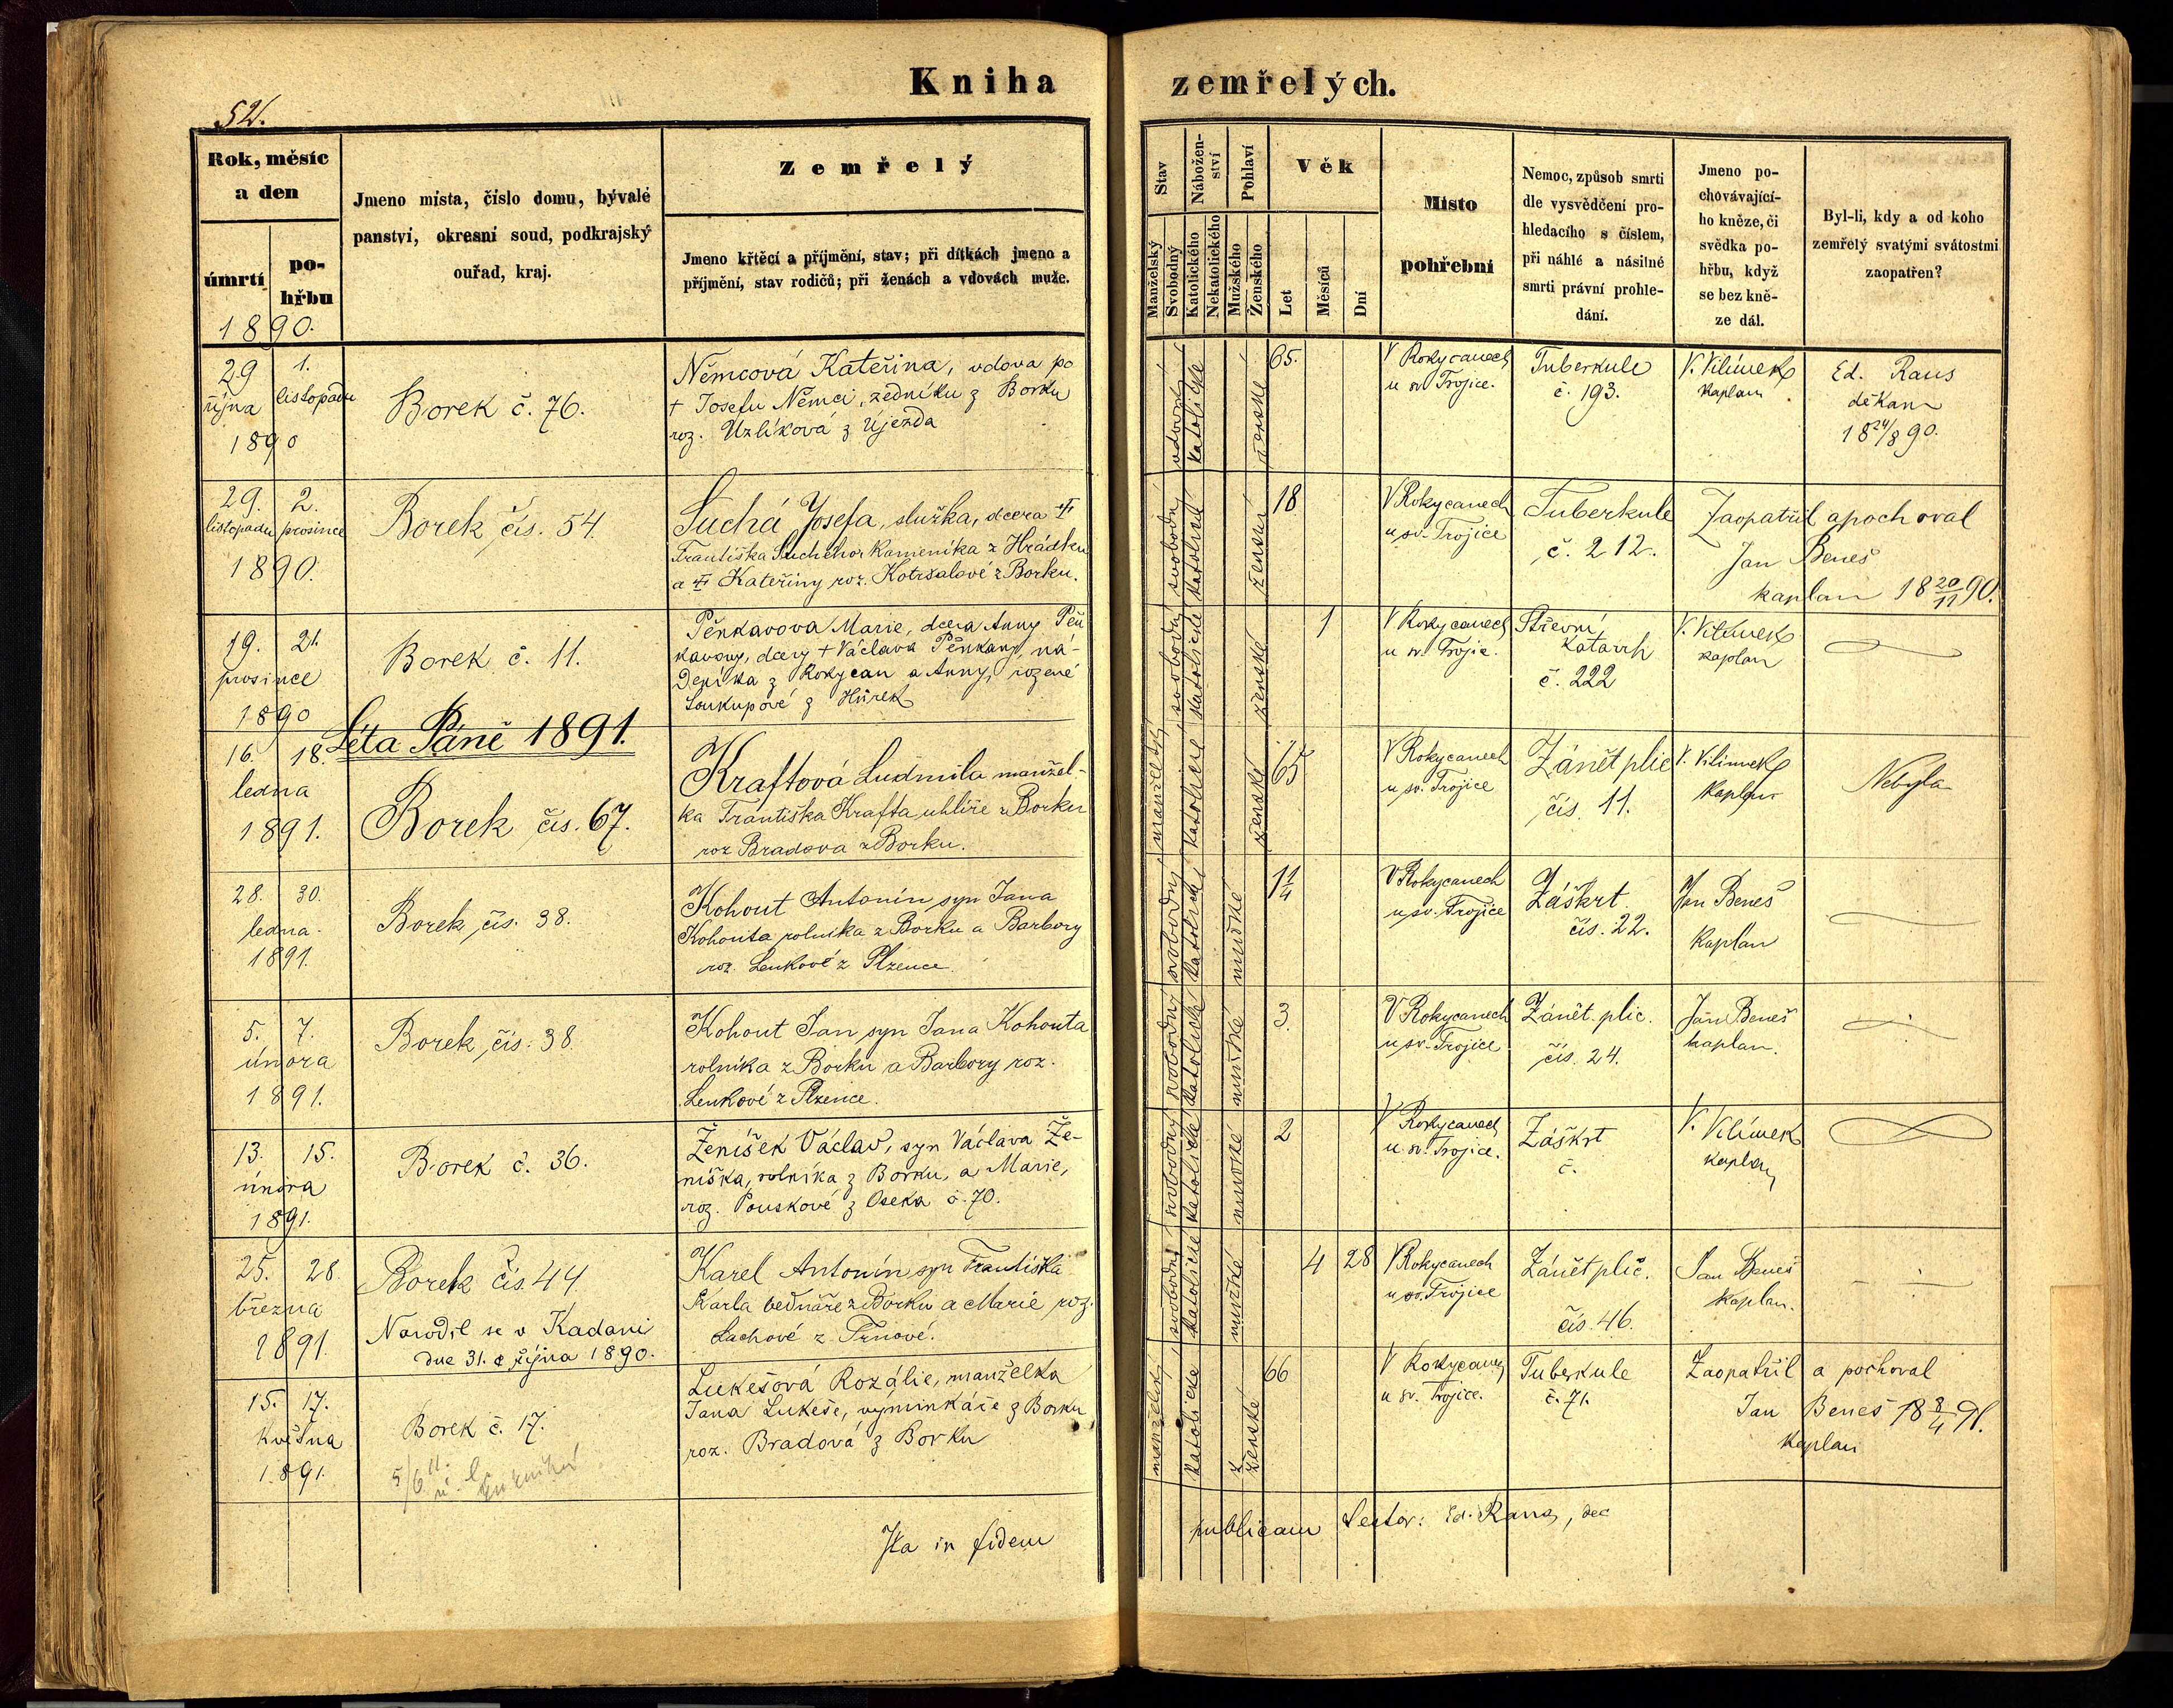 Kniha zemřelých.
52.
Rok, měsíc
a den
úmrtí
po-
hřbu
1890.
Jmeno místa, číslo domu, bývalé
panství, okresní soud, podkrajský
ouřad, kraj.
Zemřelý
Jmeno křtěcí a příjmění, stav; při dítkách jmeno a
příjmění, stav rodičů; při ženách a vdovách muže.
Stav
Manželský
Svobodný
Nábožen-
ství
Katolického
Nekatolického
Pohlaví
Mužského
Ženského
Věk
Let
Měsíců
Dní
Místo
pohřební
Nemoc, způsob smrti
dle vysvědčení pro-
hledacího s číslem,
při náhlé a násilné
smrti právní prohle-
dání.
Jmeno po-
chovávající-
ho kněze, či
svědka po-
hřbu, když
se bez kně-
ze dál.
Byl-li, kdy a od koho
zemřelý svatými svátostmi
zaopatřen?
29 1.
října listopadu
1890
Borek č. 76.
Němcová Kateřina, vdova po
† Josefu Němci, zedníku z Borku
roz. Uzlíková z Újezda
vdovský
katolické
ženské
65.
V Rokycanech
u sv. Trojice.
Tuberkule
č. 193.
V. Vilímek
kaplan
Ed. Raus
děkan
18 24/8 90.
29. 2.
listopadu prosince
1890.
Borek čís. 54.
Suchá Josefa, služka, dcera †
Františka Suchého kameníka z Hrádku
a † Kateřiny roz. Kotršalové z Borku.
svobodný
katolické
ženské
18
V Rokycanech
u sv. Trojice
Tuberkule
č. 212.
Zaopatřil a pochoval
Jan Beneš
kaplan 18 20/11 90.
19. 21.
prosince
1890
Borek č. 11.
Pěnkavova Marie, dcera Anny Pěn
kavovy, dcery † Václava Pěnkavy, ná-
deníka z Rokycan a Anny, rozené
Soukupové z Hůrek
svobodný
katolické
ženské
1
V Rokycanech
u sv. Trojic.
Střevní
katarrh
č. 222
V. Vilímek
kaplan
Léta Páně 1891.
16. 18.
ledna
1891.
Borek čís. 67.
Kraftová Ludmila manžel-
ka Františka Krafta uhlíře z Borku
roz Bradova z Borku.
manželský
katolické
ženské
65
V Rokycanech
u sv. Trojice
Zánět plic
čís. 11.
V. Vilímek
kaplan
Nebyla
28. 30.
ledna
1891.
Borek čís. 38.
Kohout Antonín syn Jana
Kohouta rolníka z Borku a Barbory
roz. Lenkové z Plzence.
svobodný
katolické
mužské
1 1/4
V Rokycanech
u sv. Trojice
Záškrt.
čís. 22.
Jan Beneš
kaplan
5. 7.
února
1891.
Borek čís. 38.
Kohout Jan syn Jana Kohouta
rolníka z Borku a Barbory roz.
Lenkové z Plzence.
svobodný
katolické
mužské
3.
V Rokycanech
u sv. Trojice
Zánět plic.
čís. 24.
Jan Beneš
kaplan.
13. 15.
února
1891.
Borek č. 36.
Ženíšek Václav, syn Václava Že-
níška, rolníka z Borku, a Marie,
roz. Pouskové z Oseka č. 70.
svobodný
katolické
mužské
2
V Rokycanech
u sv. Trojice.
Záškrt
č.
V. Vilímek
kaplan
25. 28.
března
1891.
Borek čís. 44.
Narodil se v Kadani
dne 31. října 1890.
Karel Antonín syn Františka
Karla bednáře z Borku a Marie roz.
Lachové z Trnové.
svobodný
katolické
mužské
4 28
V Rokycanech
u sv. Trojice
Zánět plic.
čís. 46.
Jan Beneš
kaplan.
15. 17.
května
1891.
Borek č. 17.
Lukešová Rozálie, manželka
Jana Lukeše, výminkáře z Borku
roz. Bradová z Borku
manželský
katolické
ženské
66
V Rokycanech
u sv. Trojice.
Tuberkule
č. 71.
Zaopatřil a pochoval
Jan Beneš 18 8/4 91.
kaplan
Ita in fidem publicam testor: Ed. Raus, dec